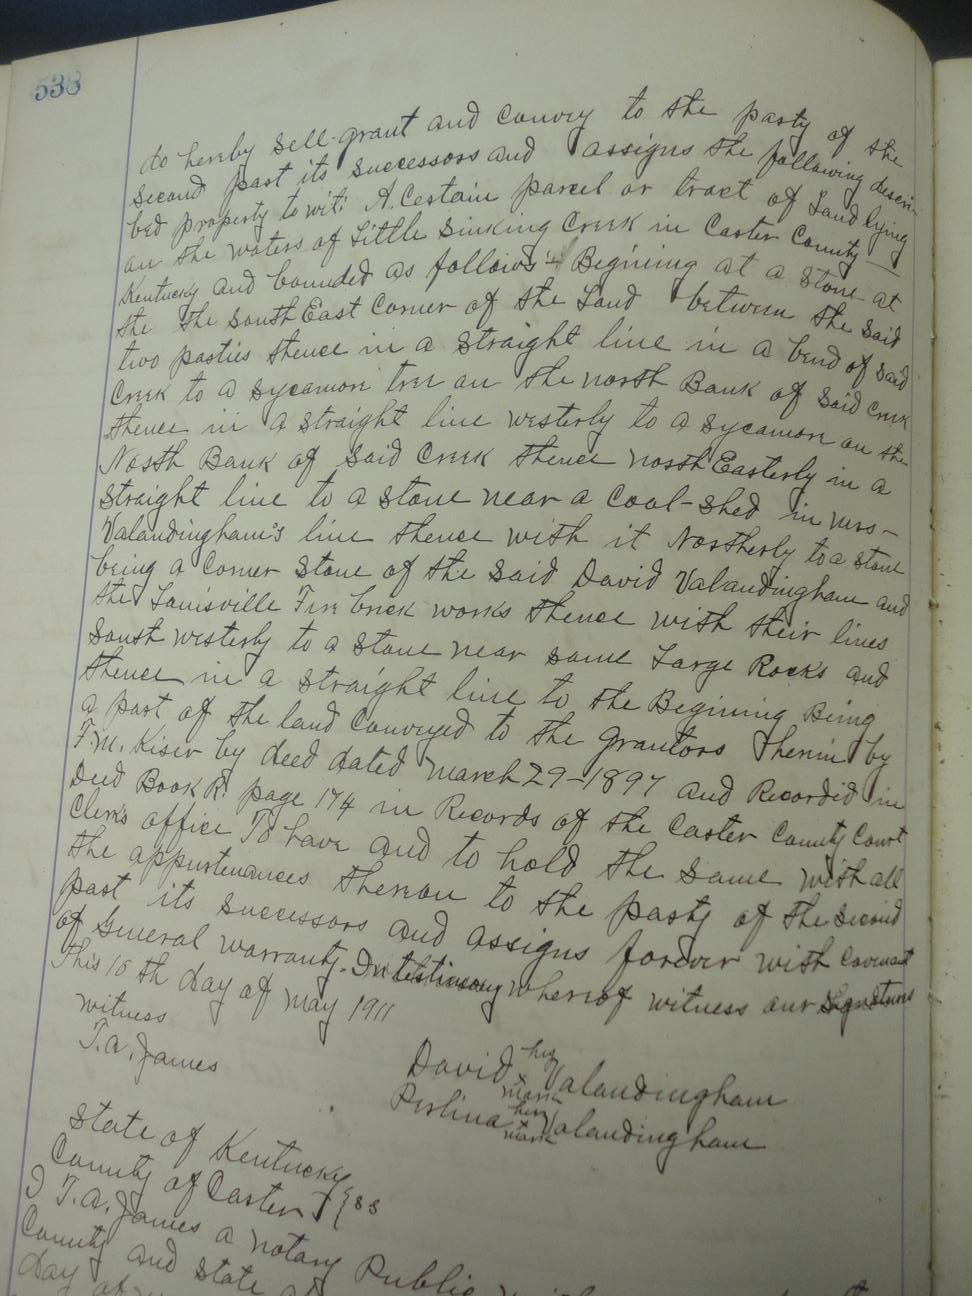 538
do hereby sell grant and convey to the party of the
second part its successors and assigns the following descri-
bed property to wit: A. Certain parcel or tract of Land lying
on the waters of Little Sinking Creek in Carter County
Kentucky and bounded as follows - Begining at a stone at
the the South East Corner of the Land between the said
two parties thence in a straight line in a bend of said
Creek to a sycamore tree on the north Bank of said creek
thence in a straight line westerly to a sycamore on the
North Bank of said Creek thence north Easterly in a
straight line to a stone near a Coal-shed in Mrs-
Valandingham's line thence with it Northerly to a stone
being a Corner Stone of the said David Valandingham and
the Louisville Fire brick works thence with their lines
South westerly to a stone near some Large Rocks and
thence in a straight line to the Begining Being
a part of the land conveyed to the grantors therin by
F.M. Kiser by deed dated March 29-1897 and Recorded in
Deed Book R. page 174 in Records of the Carter County Court
Clerks office To have and to hold the same with all
the appurtenances thereon to the party of the second
part its successors and assigns forever with Covenant
of General warranty. In testimony whereof witness our signatures
This 10 th day of May 1911
witness
T.A. James
his
David x Valandingham
mark
her
Perlina x Valandingham
mark
State of Kentucky
County of Carter } SS
I T.A. James a notary Public
County and State
day of